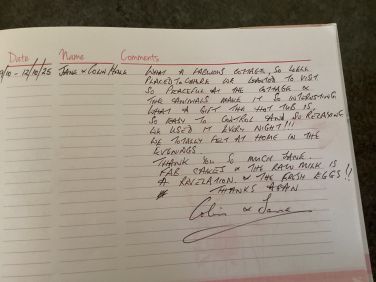 Date Name Comments
/10 - 12/10/25 JANE & COLIN HALE WHAT A FABULOUS COTTAGE, SO WELL
PLACED TO WHERE WE WANTED TO VISIT.
SO PEACEFUL AT THE COTTAGE &
THE ANIMALS MAKE IT SO INTERESTING.
WHAT A GIFT THE HOT TUB IS,
SO EASY TO CONTROL AND SO RELAXING
WE USED IT EVERY NIGHT!!!
WE TOTALLY FELT AT HOME IN THE
EVENINGS
THANK YOU SO MUCH JANE.
FAB CAKES & THE RAW MILK IS
A REVELATION & THE FRESH EGGS!!
THANKS AGAIN
Colin & Jane